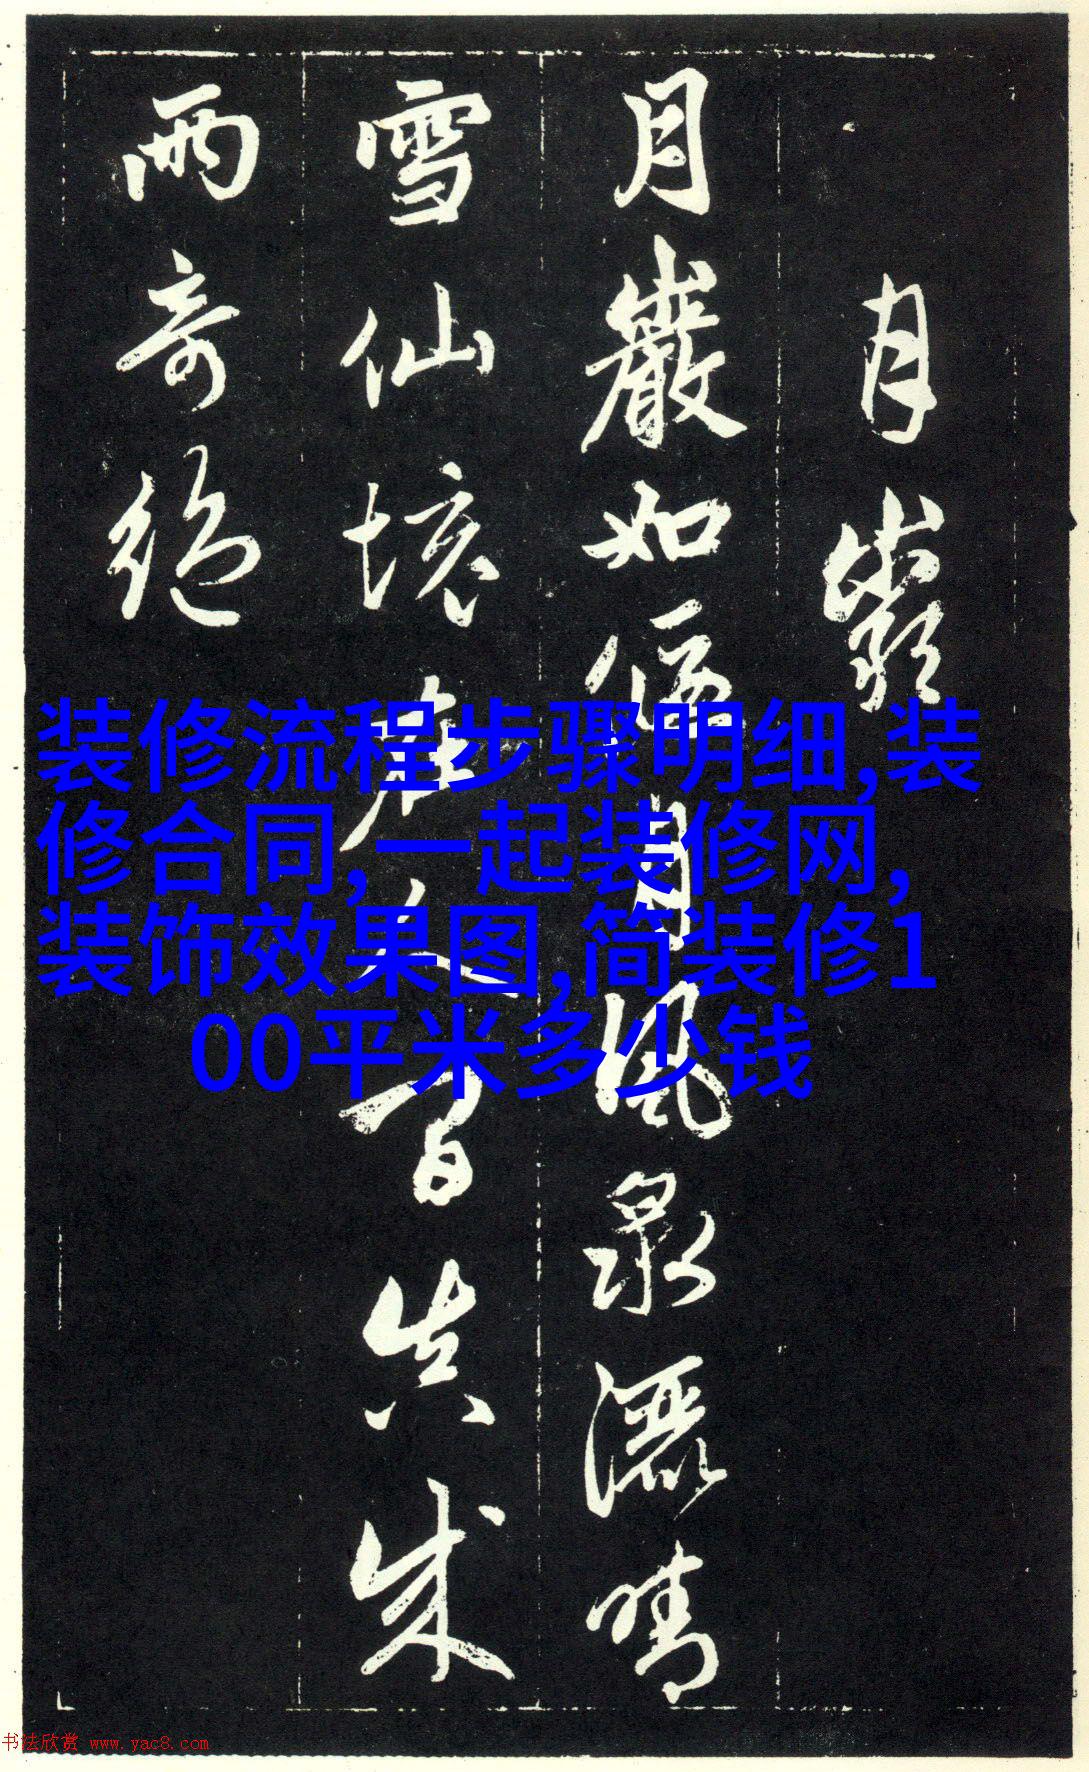 月巖
月巖如偃月風泉灑晴
雪仙境在人間真成
兩奇絕
装修流程步骤明细,装
修合同,一起装修网,
装饰效果图,简装修1
00平米多少钱
书法欣赏 www.yac8.com